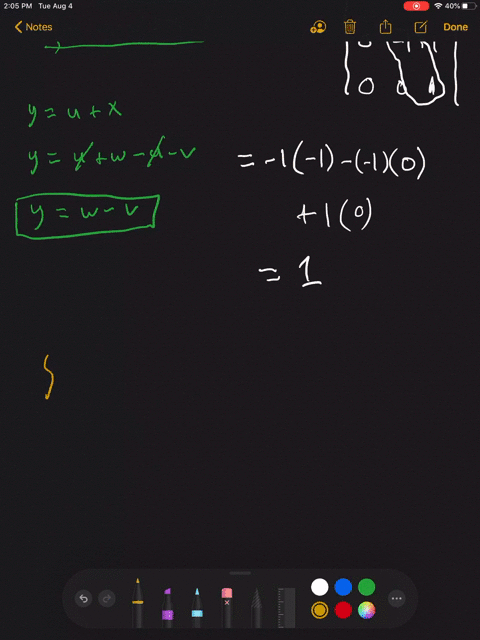 2:05 PM Tue Aug 4
40%
Notes
Done
0 0
y = u + x
y = u + w - u - v
= -1(-1) - (-1)(0)
y = w - v
+ 1(0)
= 1